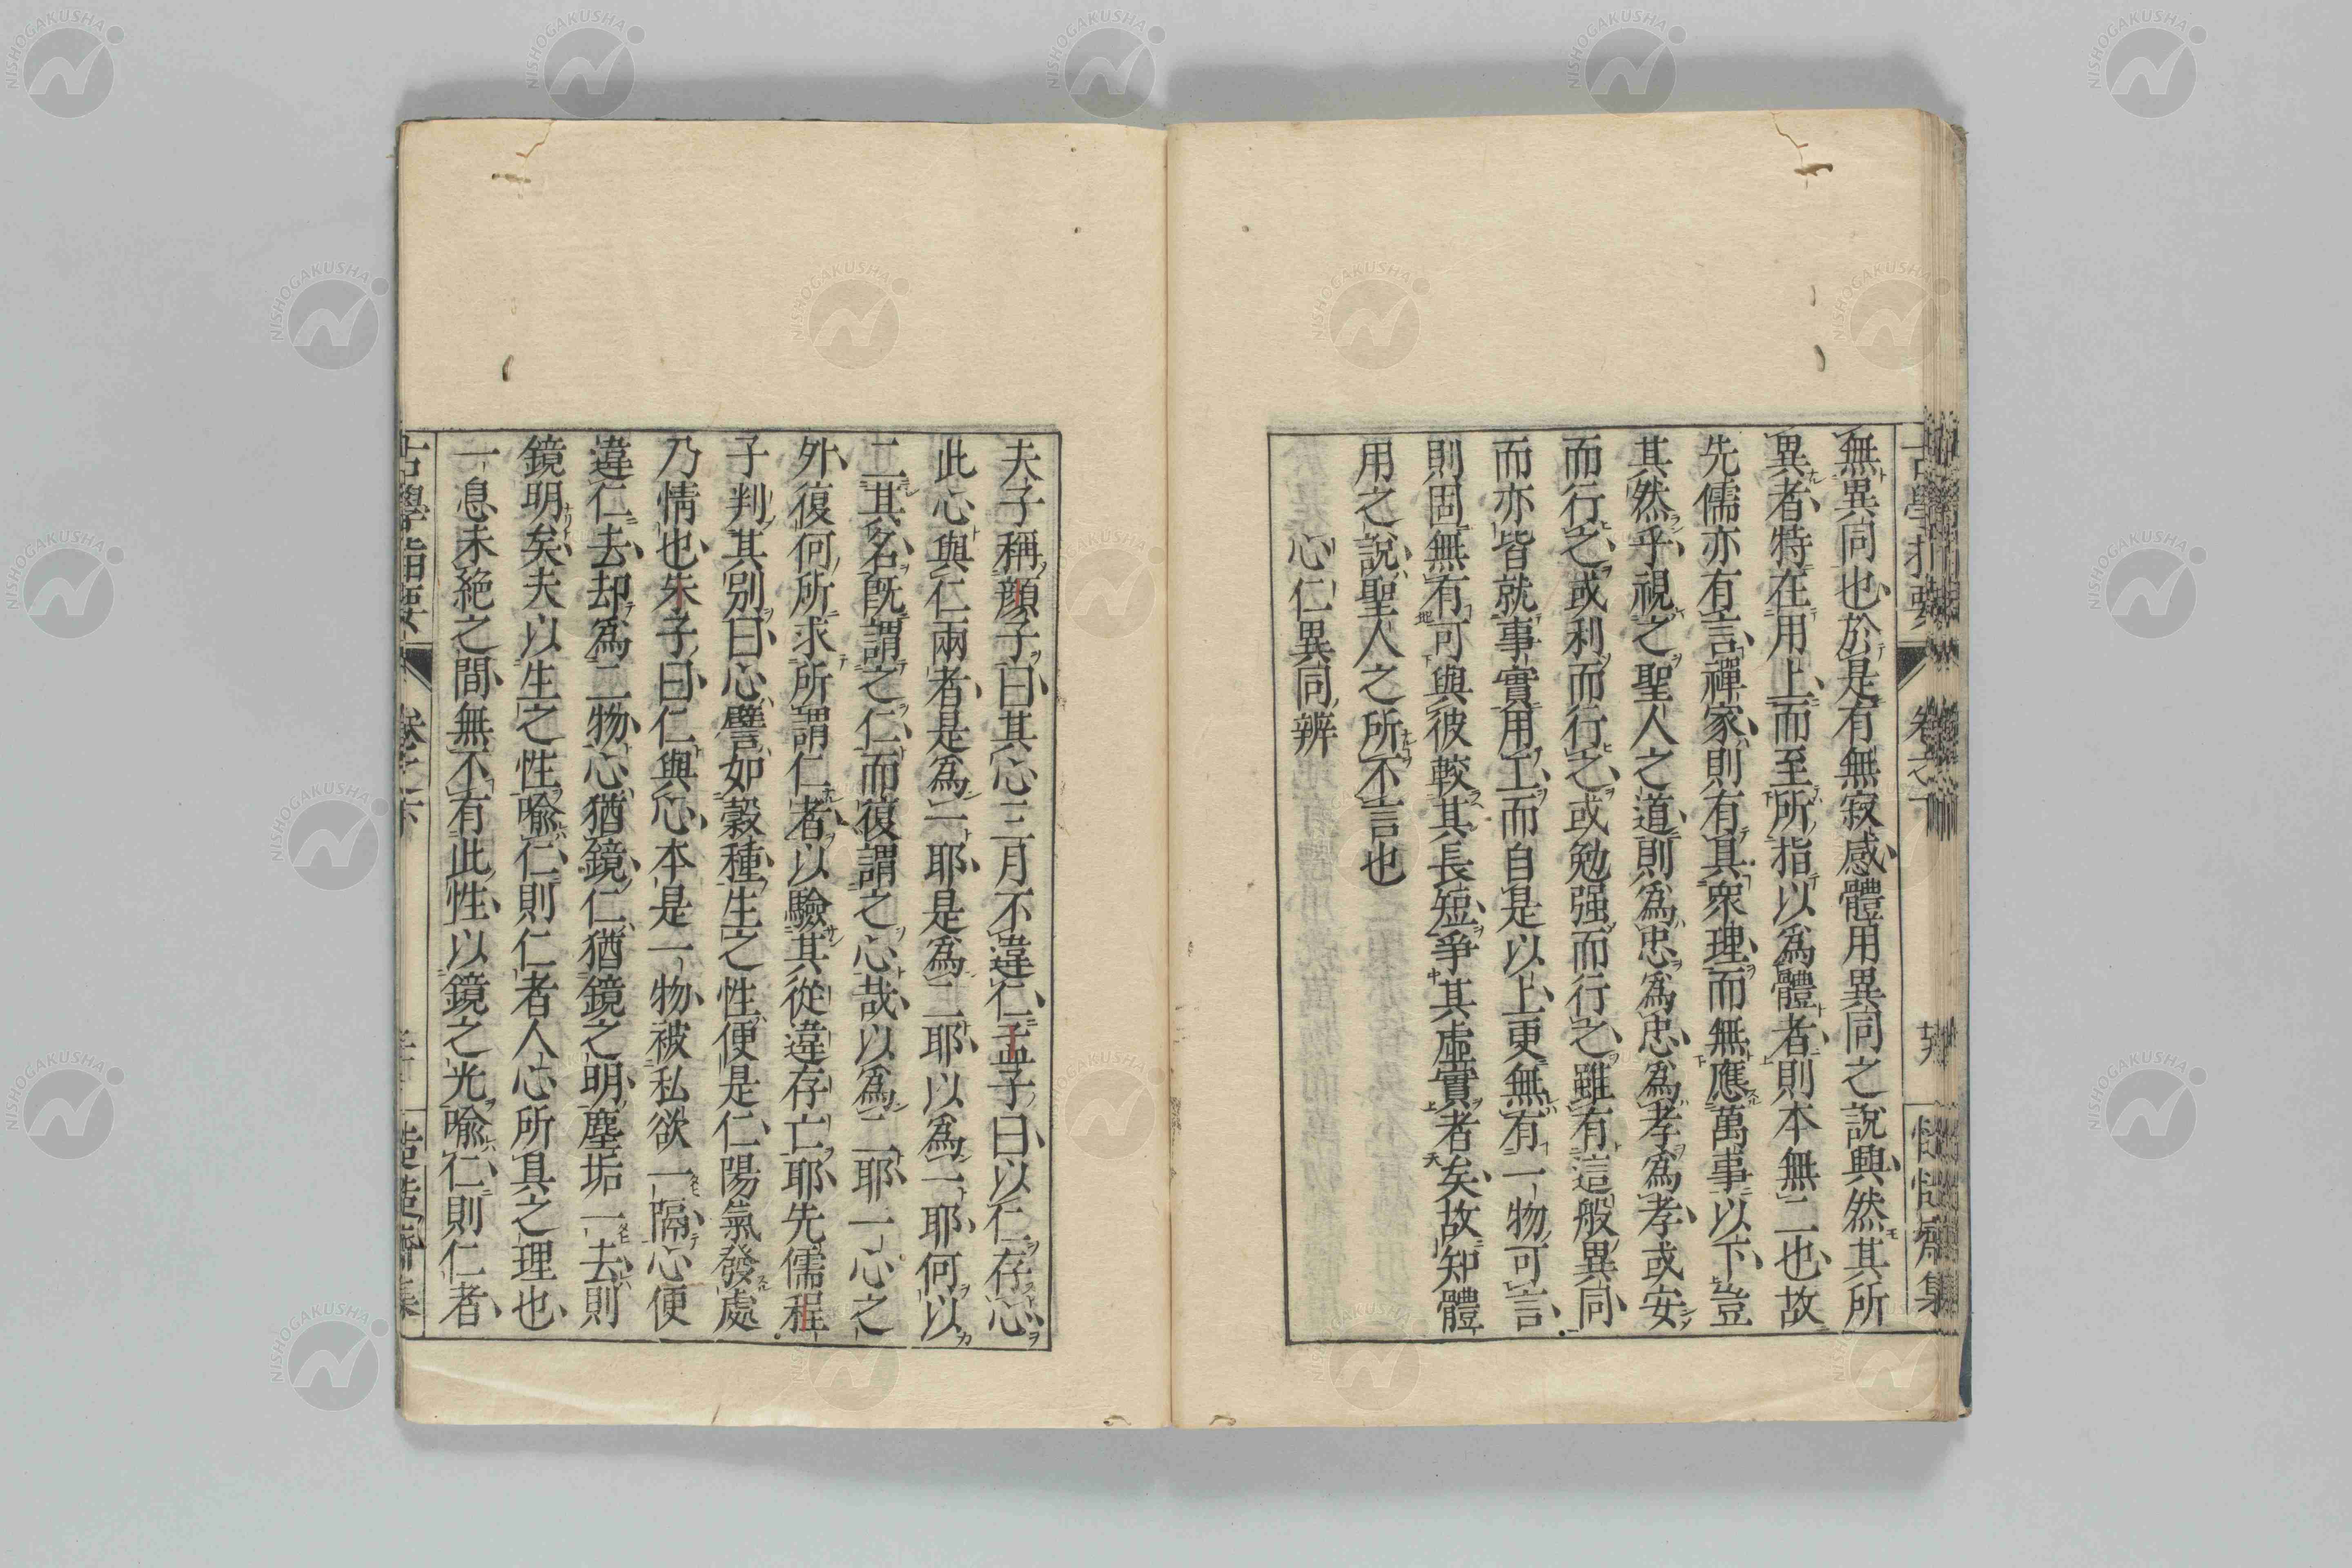 無異同也於是有無寂感體用異同之說興然其所
異者特在用上而至所指以爲體者則本無二也故
先儒亦有言禪家則有具衆理而無應萬事以下豈
其然乎視之聖人之道則爲忠爲忠爲孝爲孝或安
而行之或利而行之或勉强而行之雖有這般異同
而亦皆就事實用工而自是以上更無有一物可言
則固無有可與彼較其長短爭其虛實者矣故知體
用之說聖人之所不言也
心仁異同辨
夫子稱顔子曰其心三月不違仁孟子曰以仁存心
此心與仁兩者是爲一耶是爲二耶以爲一耶何以
二其名既謂之仁而復謂之心哉以爲二耶一心之
外復何所求所謂仁者以驗其從違存亡耶先儒程
子判其別曰心譬如穀種生之性便是仁陽氣發處
乃情也朱子曰仁與心本是一物被私欲一隔心便
違仁去却爲二物心猶鏡仁猶鏡之明塵垢一去則
鏡明矣夫以生之性喩仁則仁者人心所具之理也
一息未絶之間無不有此性以鏡之光喩仁則仁者
古學指要
卷之下
NISHOGAKUSHA